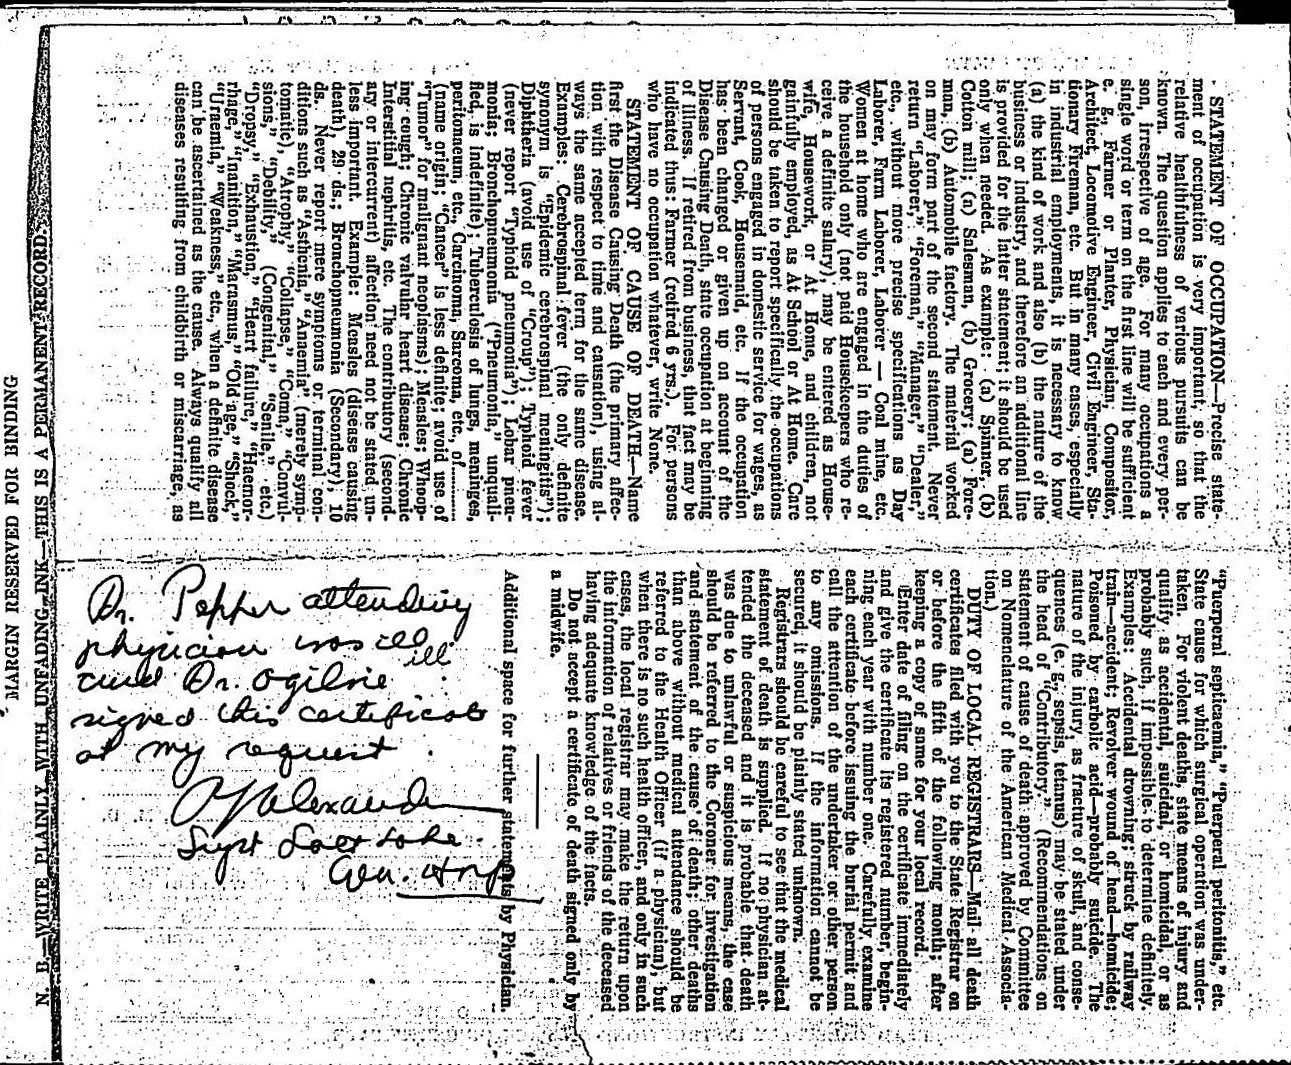 STATEMENT OF OCCUPATION—Precise state-
ment of occupation is very important, so that the
relative healthfulness of various pursuits can be
known. The question applies to each and every per-
son, irrespective of age. For many occupations a
single word or term on the first line will be sufficient
e. g., Farmer or Planter, Physician, Compositor,
Architect, Locomotive Engineer, Civil Engineer, Sta-
tionary Fireman, etc. But in many cases, especially
in industrial employments, it is necessary to know
(a) the kind of work and also (b) the nature of the
business or industry, and therefore an additional line
is provided for the latter statement; it should be used
only when needed. As example: (a) Spinner, (b)
Cotton mill; (a) Salesman, (b) Grocery; (a) Fore-
man, (b) Automobile factory. The material worked
on may form part of the second statement. Never
return "Laborer," "Foreman," "Manager," "Dealer,"
etc., without more precise specifications as Day
Laborer, Farm Laborer, Laborer — Coal mine, etc.
Women at home who are engaged in the duties of
the household only (not paid Housekeepers who re-
ceive a definite salary), may be entered as House-
wife, Housework, or At Home, and children, not
gainfully employed, as At School or At Home. Care
should be taken to report specifically the occupations
of persons engaged in domestic service for wages, as
Servant, Cook, Housemaid, etc. If the occupation
has been changed or given up on account of the
Disease Causing Death, state occupation at beginning
of illness. If retired from business, that fact may be
indicated thus: Farmer (retired 6 yrs.). For persons
who have no occupation whatever, write None.
STATEMENT OF CAUSE OF DEATH—Name
first the Disease Causing Death (the primary affec-
tion with respect to time and causation), using al-
ways the same accepted term for the same disease.
Examples: Cerebrospinal fever (the only definite
synonym is "Epidemic cerebrospinal meningitis");
Diphtheria (avoid use of "Croup"); Typhoid fever
(never report "Typhoid pneumonia"); Lobar pneu-
monia; Bronchopneumonia ("Pneumonia," unquali-
fied, is indefinite); Tuberculosis of lungs, meninges,
peritonaeum, etc., Carcinoma, Sarcoma, etc., of
(name origin, "Cancer" is less definite; avoid use of
"Tumor" for malignant neoplasms); Measles; Whoop-
ing cough; Chronic valvular heart disease; Chronic
Interstitial nephritis, etc. The contributory (second-
ary or intercurrent) affection need not be stated un-
less important. Example: Measles (disease causing
death), 29 ds.; Bronchopneumonia (Secondary), 10
ds. Never report mere symptoms or terminal con-
ditions such as "Asthenia," "Anaemia" (merely symp-
tomatic), "Atrophy," "Collapse," "Coma," "Convul-
sions," "Debility," (Congenital," "Senile," etc.)
"Dropsy," "Exhaustion," "Heart failure," "Haemor-
rhage," "Inanition," "Marasmus," "Old age," "Shock,"
"Uraemia," "Weakness," etc., when a definite disease
can be ascertained as the cause. Always qualify all
diseases resulting from childbirth or miscarriage, as
"Puerperal septicaemia," "Puerperal peritonitis," etc.
State cause for which surgical operation was under-
taken. For violent deaths, state means of injury and
qualify as accidental, suicidal, or homicidal, or as
probably such, if impossible to determine definitely.
Examples: Accidental drowning; struck by railway
train—accident; Revolver wound of head—homicide;
Poisoned by carbolic acid—probably suicide. The
nature of the injury, as fracture of skull, and conse-
quences (e. g., sepsis, tetanus) may be stated under
the head of "Contributory." (Recommendations on
statement of cause of death approved by Committee
on Nomenclature of the American Medical Associa-
tion.)
DUTY OF LOCAL REGISTRARS—Mail all death
certificates filed with you to the State Registrar on
or before the fifth of the following month; after
keeping a copy of same for your local record.
Enter date of filing on the certificate immediately
and give the certificate its registered number, begin-
ning each year with number one. Carefully examine
each certificate before issuing the burial permit and
call the attention of the undertaker or other person
to any omissions. If the information cannot be
secured, it should be plainly stated unknown.
Registrars should be careful to see that the medical
statement of death is supplied. If no physician at-
tended the deceased and it is probable that death
was due to unlawful or suspicious means, the case
should be referred to the Coroner for investigation
and statement of the cause of death; other deaths
than above without medical attendance should be
referred to the Health Officer (if a physician), but
when there is no such health officer, and only in such
cases, the local registrar may make the return upon
the information of relatives or friends of the deceased
having adequate knowledge of the facts.
Do not accept a certificate of death signed only by
a midwife.
Additional space for further statements by Physician.
Dr. Pepper attending
physician was ill
ill
and Dr. Ogilvie
signed this certificate
at my request.
Alexander
Supt Salt Lake
Gen. Hosp
MARGIN RESERVED FOR BINDING
N. B.—WRITE PLAINLY WITH UNFADING INK—THIS IS A PERMANENT RECORD.